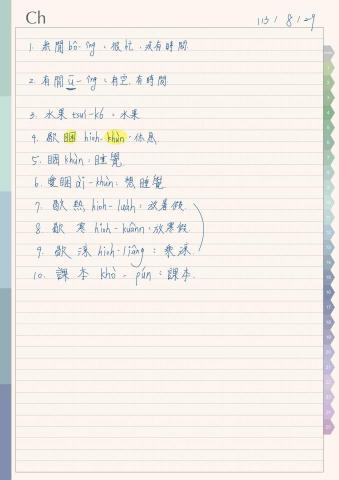 Ch 113 / 8 / 29
1. 無閒 bô-îng：很忙，沒有時間
2. 有閒 ū-îng：有空，有時間
3. 水果 tsuí-kó：水果
4. 歇睏 hioh-khùn：休息
5. 睏 khùn：睡覺
6. 愛睏 ài-khùn：想睡覺
7. 歇熱 hioh-luah：放暑假
8. 歇寒 hioh-kuânn：放寒假
9. 歇涼 hioh-liâng：乘涼
10. 課本 khò-pún：課本